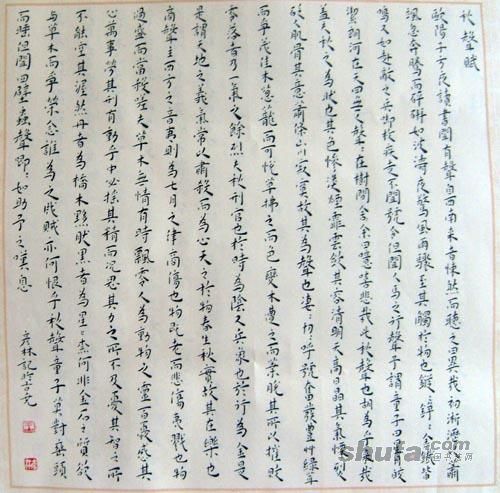 秋聲賦
歐陽子方夜讀書聞有聲自西南來者悚然而聽之曰異哉初淅瀝蕭
風忽奔騰而砰湃如波濤夜驚風雨驟至其觸於物也鏦鏦錚錚金鐵皆
鳴又如赴敵之兵銜枚疾走不聞號令但聞人馬之行聲予謂童子曰皎
潔明河在天四無人聲聲在樹間余曰噫嘻悲哉此秋聲也胡為乎來哉
蓋夫秋之為狀也其色慘淡煙霏雲斂其容清明天高日晶其氣慄冽
砭人肌骨其意蕭條山川寂寞故其為聲也淒淒切切呼號奮發豐草綠縟
而爭茂佳木蔥蘢而可悅草拂之而色變木遭之而葉脫其所以摧敗
零落者乃一氣之餘烈夫秋刑官也於時為陰又兵象也於行為金是
是謂天地之義氣常以肅殺而為心天之於物春生秋實故其在樂也
商聲主西方之音夷則為七月之律商傷也物既老而悲傷夷戮也物
過盛而當殺嗟夫草木無情有時飄零人為動物之靈百憂感其
心萬事勞其形有動乎中必搖其精而況思其力之所不及憂其智之所
不能宜其渥然丹者為槁木黟然黑者為星星奈何非金石之質欲
與草木而爭榮念誰為之戕賊亦何恨乎秋聲童子莫對垂頭
而睡但聞四壁蟲聲唧唧如助予之嘆息
彥林記
shufa
.com